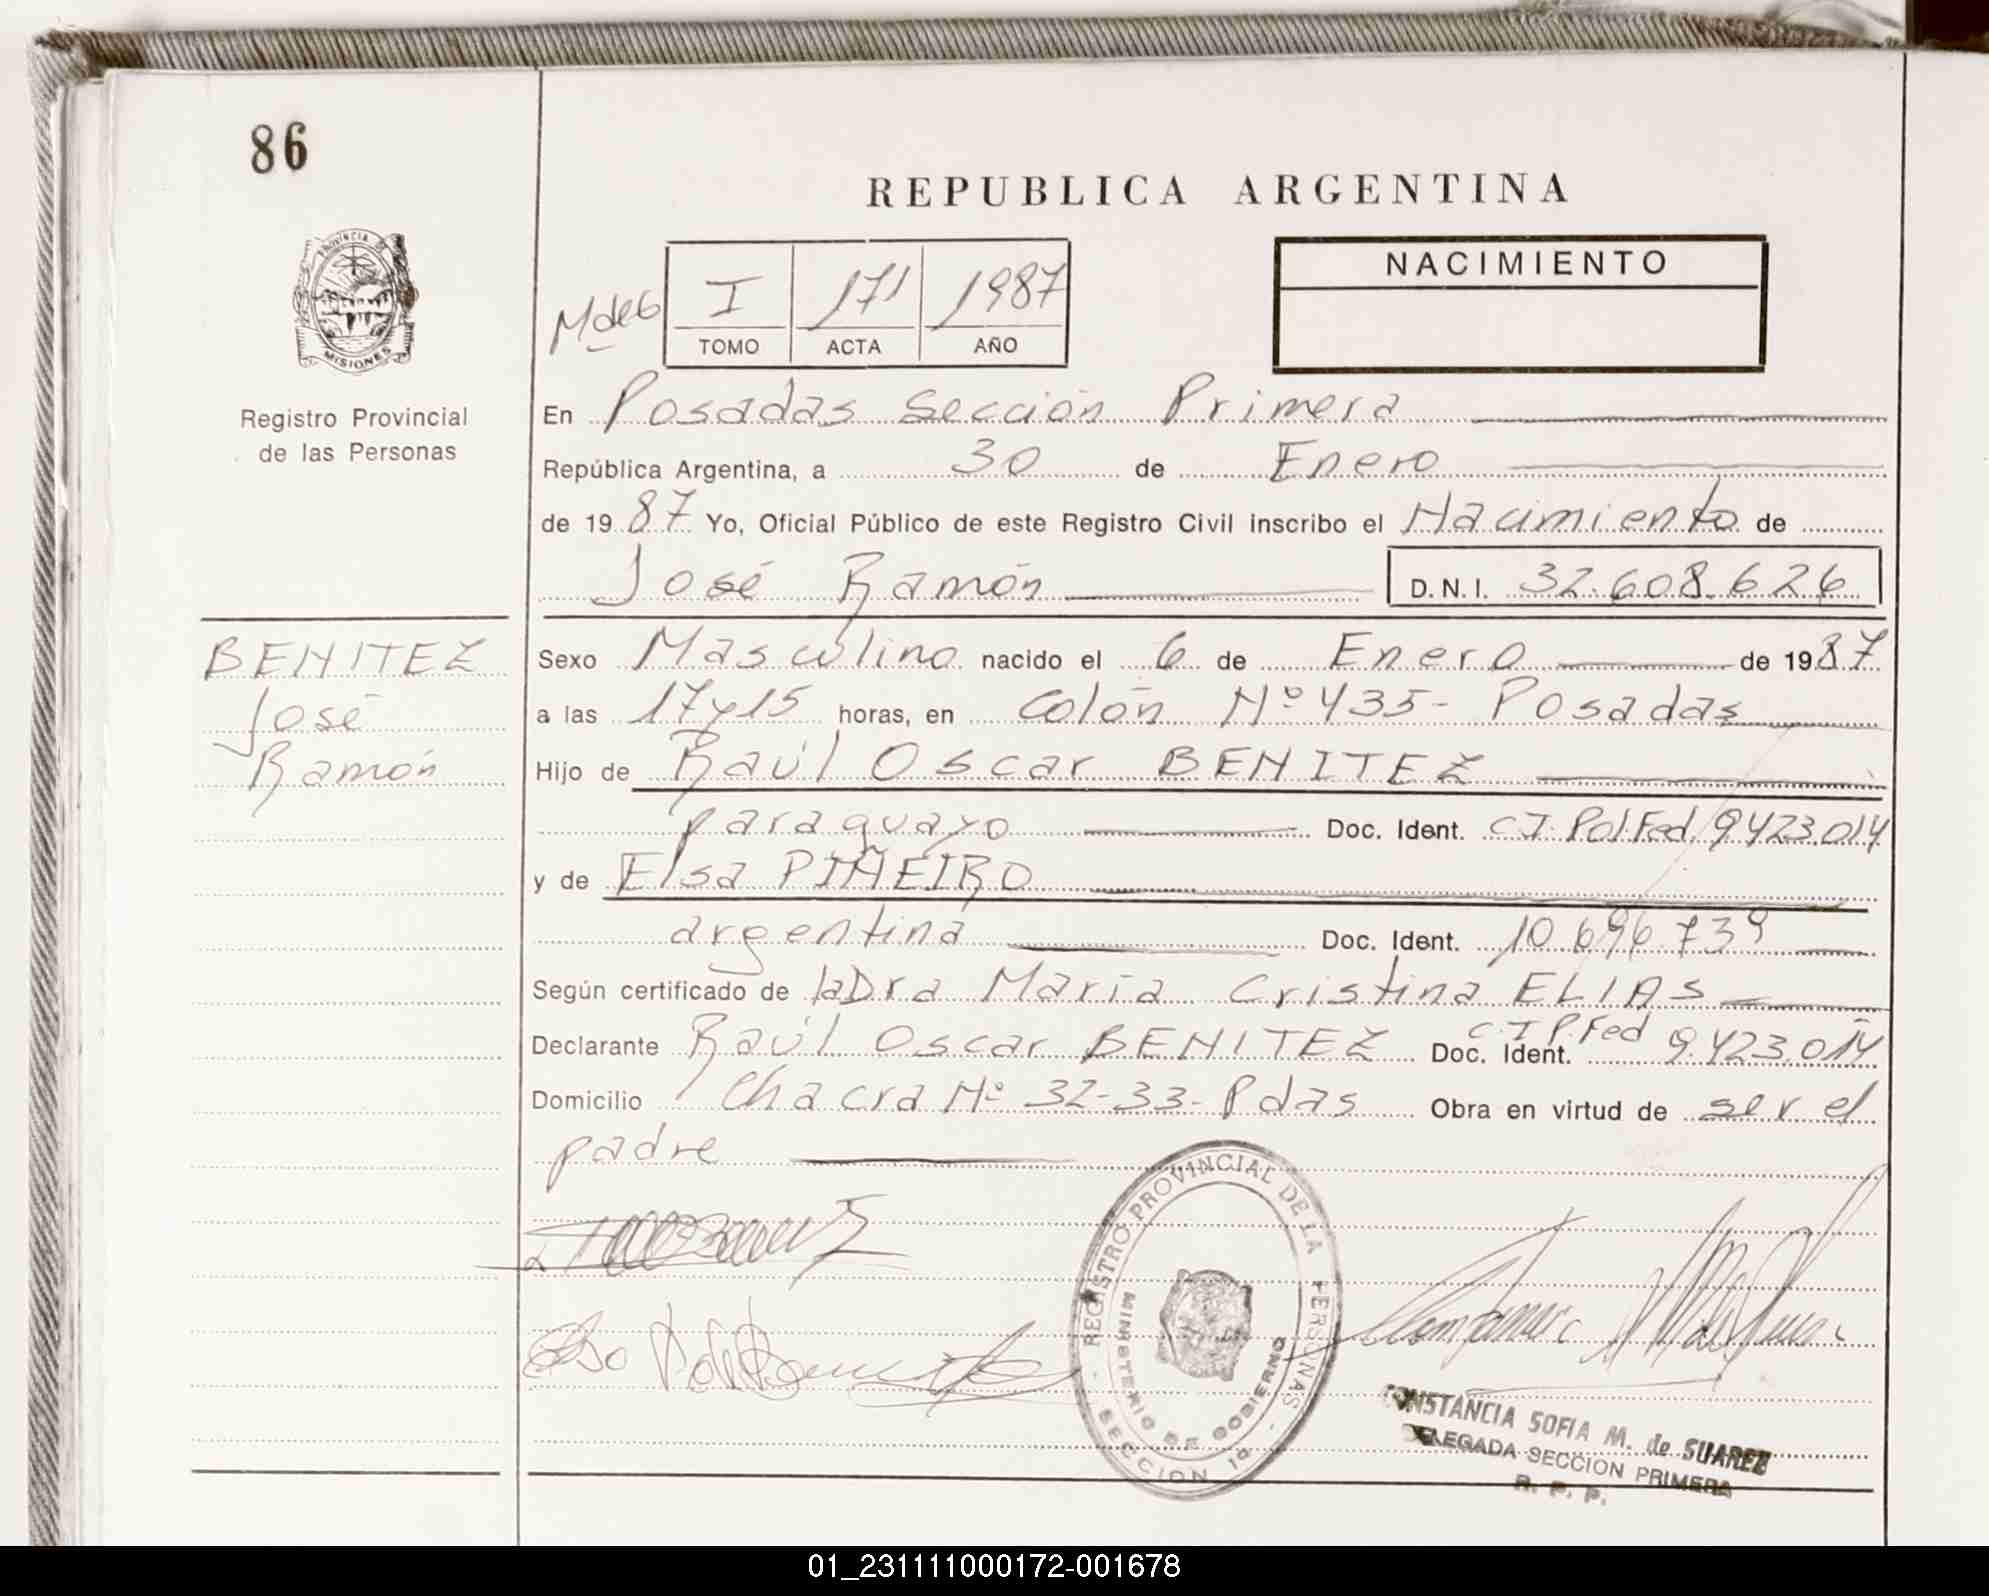 86
REPUBLICA ARGENTINA
PROVINCIA DE
MISIONES
Registro Provincial
de las Personas
I 171 1987
TOMO ACTA AÑO
NACIMIENTO
En Posadas Sección Primera
República Argentina, a 30 de Enero
de 1987 Yo, Oficial Público de este Registro Civil inscribo el Nacimiento de
José Ramón D.N.I. 32.608.626
BENITEZ
José
Ramón
Sexo Masculino nacido el 6 de Enero de 1987
a las 17 y 15 horas, en Colón Nº 435- Posadas
Hijo de Raúl Oscar BENITEZ
paraguayo Doc. Ident. C.I. Pol. Fed. 9.423.014
y de Elsa PIÑEIRO
argentina Doc. Ident. 10.696.739
Según certificado de la Dra María Cristina ELIAS
Declarante Raúl Oscar BENITEZ Doc. Ident. C.I P. Fed 9.423.014
Domicilio Chacra Nº 32-33- Pdas Obra en virtud de ser el
padre
REGISTRO PROVINCIAL DE LA PERSONAS
MINISTERIO DE GOBIERNO
SECCION 1a
CONSTANCIA SOFIA M. de SUAREZ
DELEGADA SECCION PRIMERA
R. P. P.
01_231111000172-001678